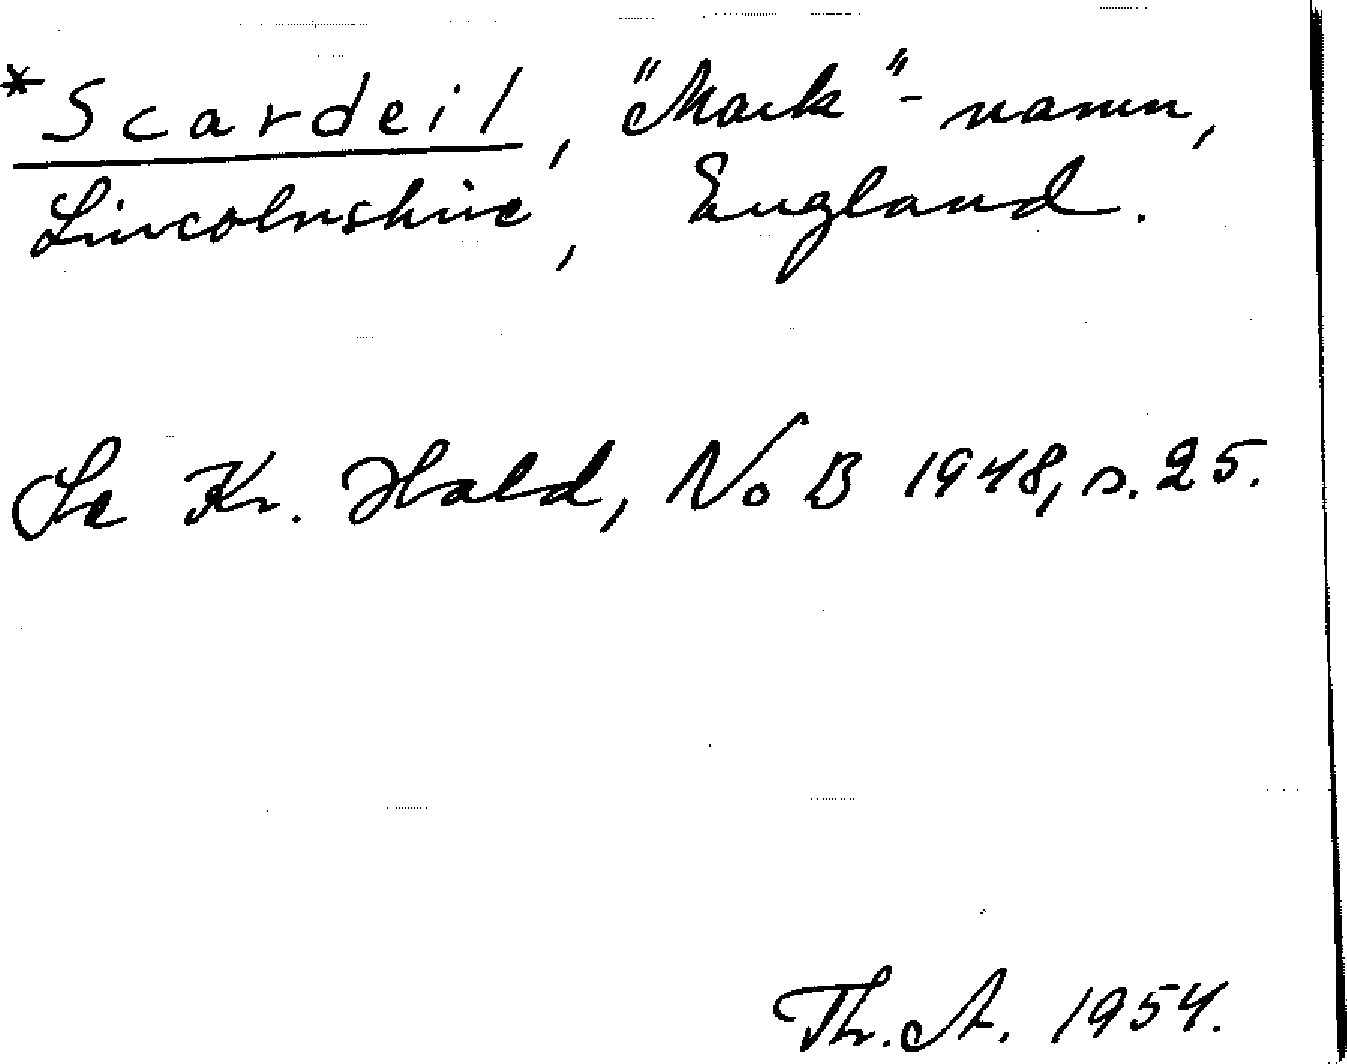 *Scardeil, "Mark"-namn,
Lincolnshire, England.
Se Kr. Hald, NoB 1948, s. 25.
Th. A. 1954.